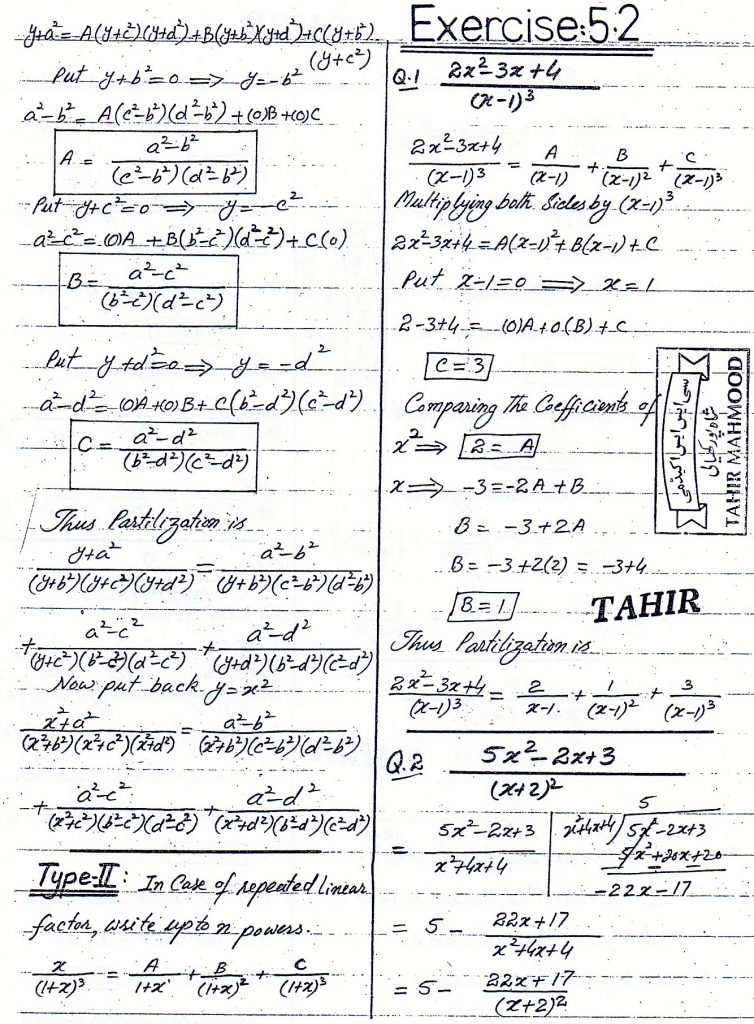 y+a² = A(y+c²)(y+d²)+B(y+b²)(y+d²)+C(y+b²)
(y+c²)
Put y+b²=0 ⟹ y=-b²
a²-b² = A(c²-b²)(d²-b²)+(0)B+(0)C
A = (a²-b²)/((c²-b²)(d²-b²))
Put y+c²=0 ⟹ y=-c²
a²-c²=(0)A+B(b²-c²)(d²-c²)+C(0)
B = (a²-c²)/((b²-c²)(d²-c²))
Put y+d²=0 ⟹ y=-d²
a²-d²=(0)A+(0)B+C(b²-d²)(c²-d²)
C = (a²-d²)/((b²-d²)(c²-d²))
Thus Partilization is
(y+a²)/((y+b²)(y+c²)(y+d²)) = (a²-b²)/((y+b²)(c²-b²)(d²-b²))
+ (a²-c²)/((y+c²)(b²-c²)(d²-c²)) + (a²-d²)/((y+d²)(b²-d²)(c²-d²))
Now put back y=x²
(x²+a²)/((x²+b²)(x²+c²)(x²+d²)) = (a²-b²)/((x²+b²)(c²-b²)(d²-b²))
+ (a²-c²)/((x²+c²)(b²-c²)(d²-c²)) + (a²-d²)/((x²+d²)(b²-d²)(c²-d²))
Type-II: In Case of repeated linear
factor, write upto n powers.
x/(1+x)³ = A/(1+x) + B/(1+x)² + C/(1+x)³
Exercise:5.2
Q.1 (2x²-3x+4)/(x-1)³
(2x²-3x+4)/(x-1)³ = A/(x-1) + B/(x-1)² + C/(x-1)³
Multiplying both Sides by (x-1)³
2x²-3x+4 = A(x-1)²+B(x-1)+C
Put x-1=0 ⟹ x=1
2-3+4 = (0)A+0(B)+C
C=3
Comparing The Coefficients of
x² ⟹ 2 = A
x ⟹ -3=-2A+B
B = -3+2A
B = -3+2(2) = -3+4
B=1
Thus Partilization is
(2x²-3x+4)/(x-1)³ = 2/(x-1) + 1/(x-1)² + 3/(x-1)³
سی ایس ایس اکیڈمی
TAHIR MAHMOOD
TAHIR
Q.2 (5x²-2x+3)/(x+2)²
= (5x²-2x+3)/(x²+4x+4)
5
x²+4x+4) 5x²-2x+3
5x²+20x+20
-22x-17
= 5 - (22x+17)/(x²+4x+4)
= 5 - (22x+17)/(x+2)²